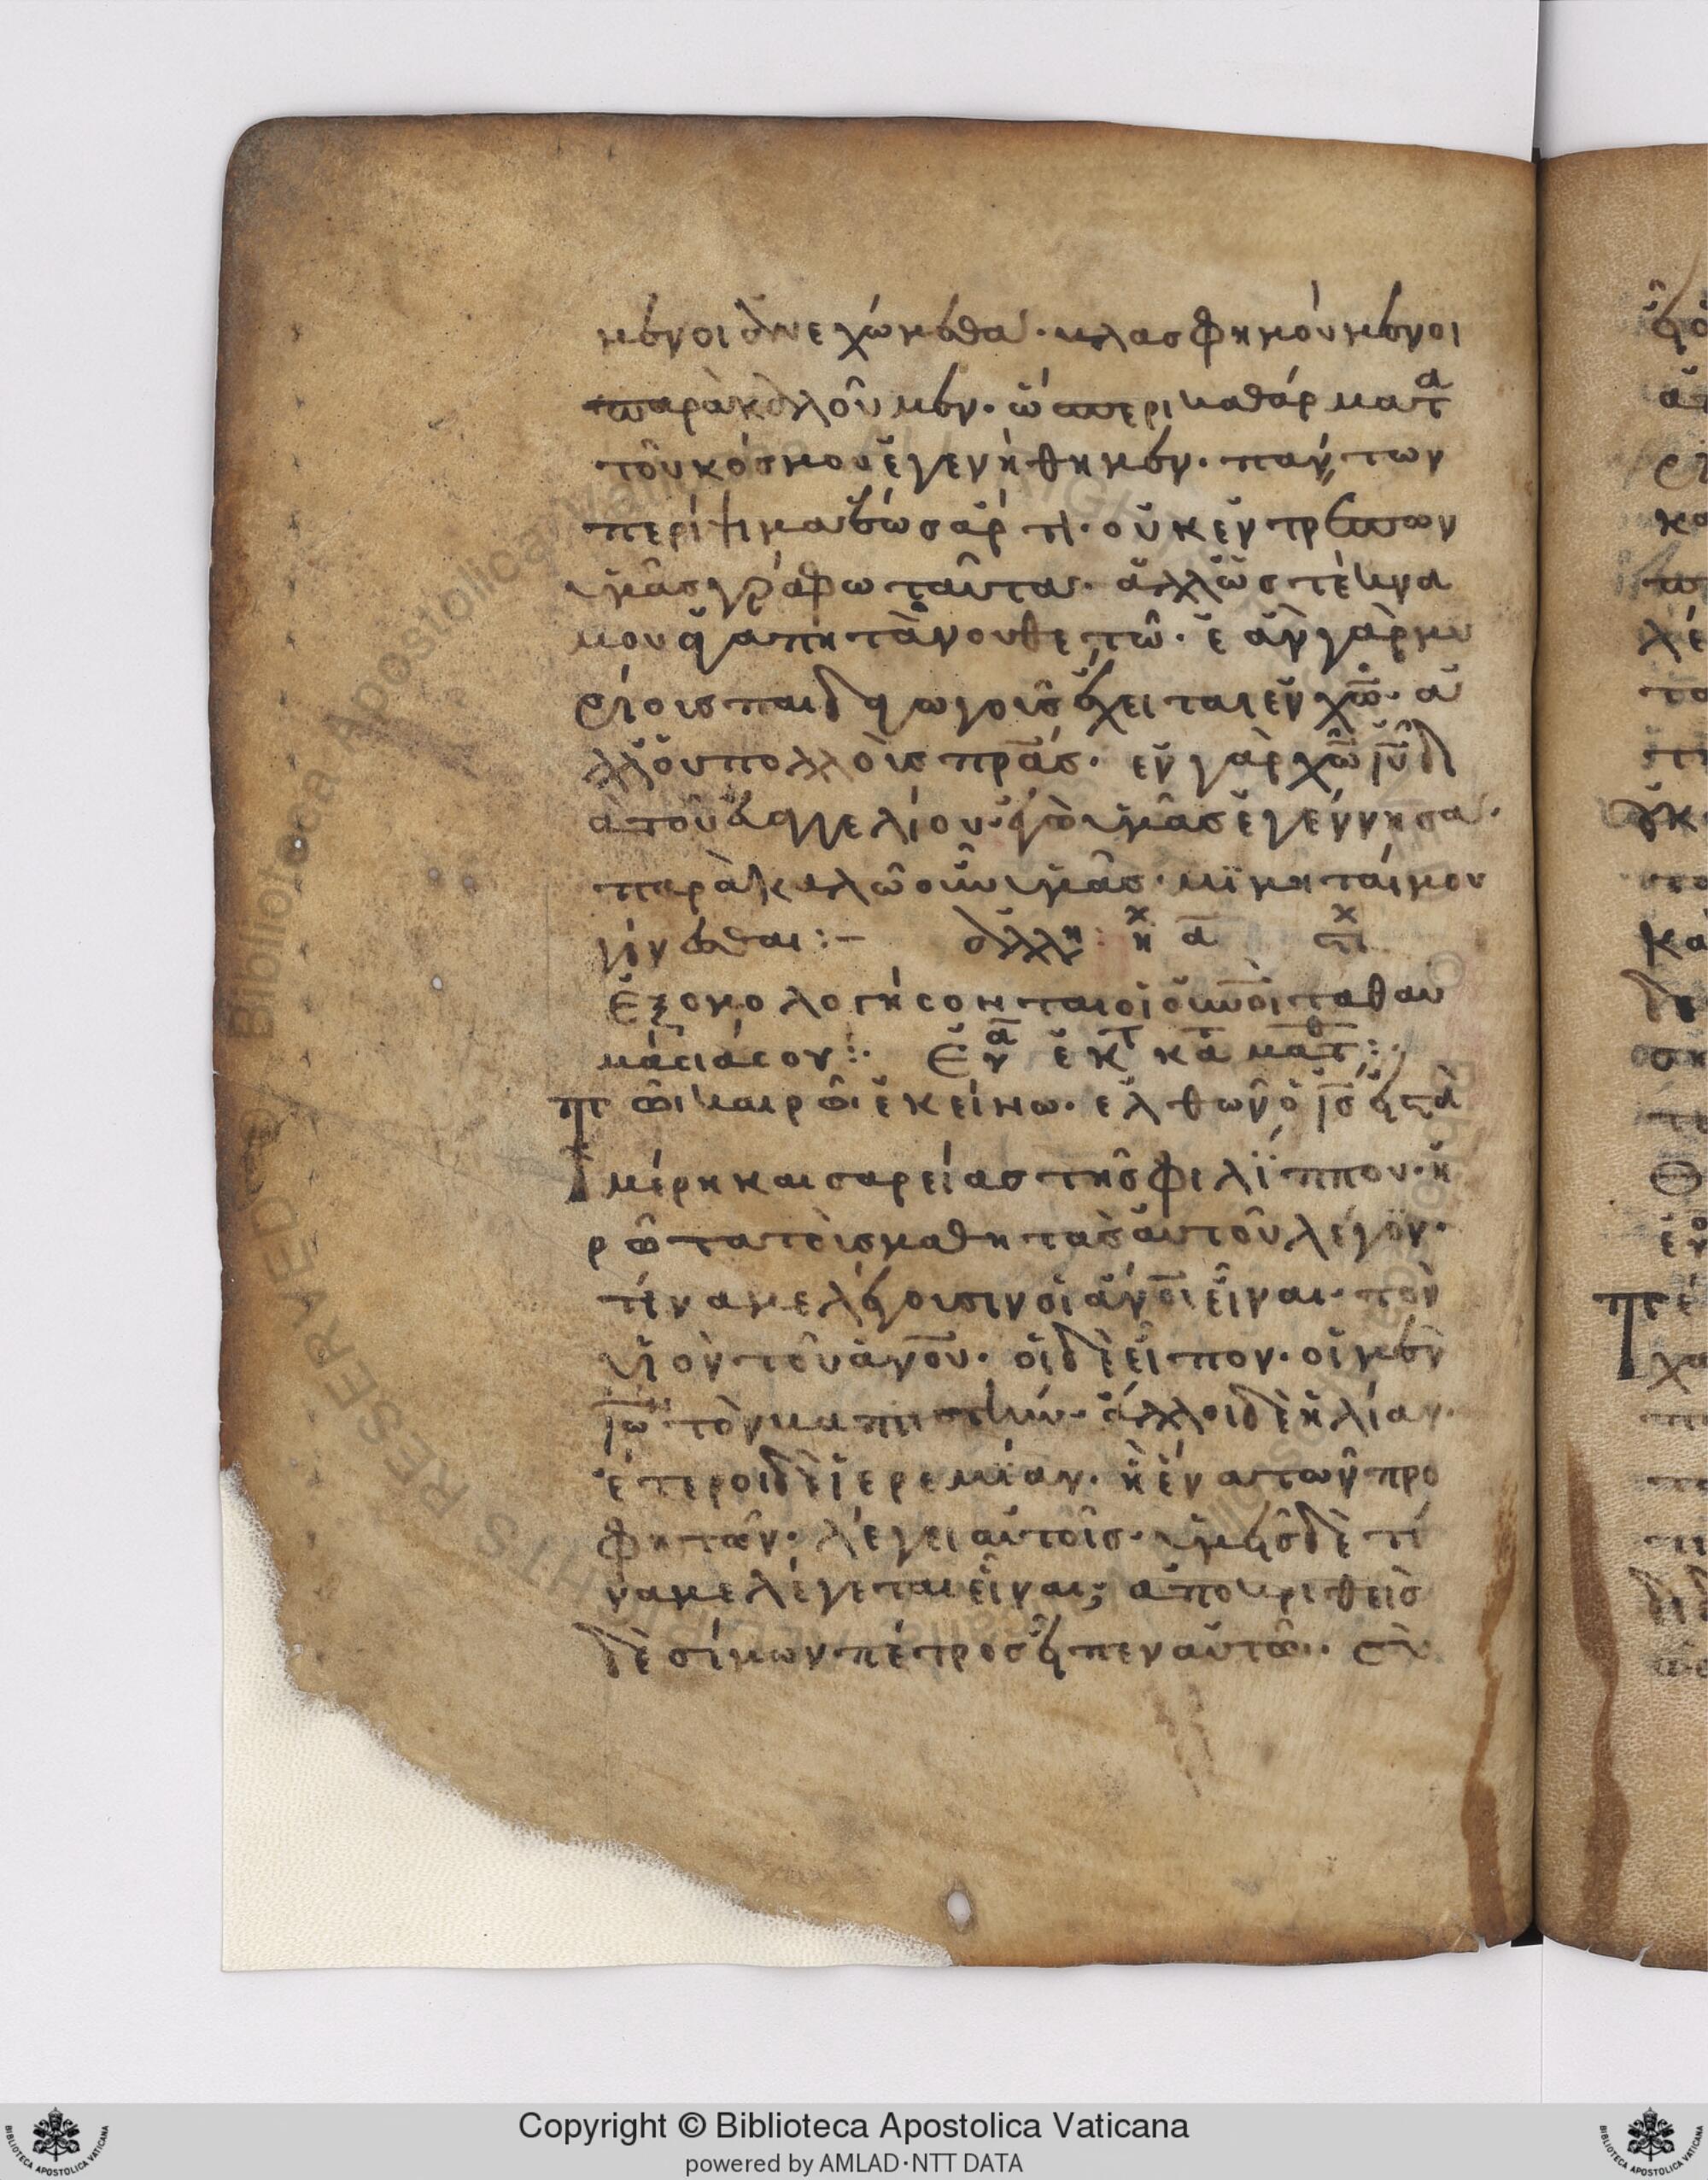 μενοι ἀνεχώμεθα· βλασφημούμενοι
παρὰκαλοῦμεν· ὥσπερικαθάρματα
τοῦκόσμου ἐγενήθημεν· πάντων
περίψιμα ἕωσ ἄρτι· οὐκ ἐντρέπων
ὑμᾶσ γράφω ταῦτα· ἀλλ' ὡσ τέκνα
μου ἀγαπητὰ νουθετῶ· ἐὰν γὰρ μυ
ρίουσ παιδαγωγοὺσ ἔχειται ἐν χω· ἀ
λλ' οὐ πολλοὺσ πρασ· ἐν γὰρ χω ιυ δι
ὰ τοῦ εὐαγγελίου ἐγὼ ὑμᾶσ ἐγέννησα·
παρὰκαλῶ οὖν ὑμᾶσ· μϊμηταί μου
γίνεσθαι :–
ἐξομολογήσονται οἱ οὐνοὶ τὰ θαυ
μάσιά σου :·
Τῶι καιρῶι ἐκείνω· ἐλθὼν ὁ ισ εἰσ τὰ
μέρη καισαρείασ τῆσ φιλίππου· ἠ
ρῶτα τοὺσ μαθητὰσ αὐτοῦ λέγον·
τίνα με λέγουσιν οἱ ἀνοι εἶναι· τὸν
υἱὸν τοῦ ἀνου· οἱ δὲ εἶπον· οἱ μὲν
ιω τὸν βαπτιστήν· ἄλλοι δὲ ἠλίαν·
ἕτεροι δὲ ἱερεμίαν· ἢ ἕνα τῶν προ
φητῶν· λέγει αὐτοῖσ· ὑμεῖσ δὲ τί
να με λέγεται εἶναι; ἀποκριθεὶσ
δὲ σίμων πέτροσ εἶπεν αὐτῶ· σὺ
Copyright © Biblioteca Apostolica Vaticana
powered by AMLAD·NTT DATA